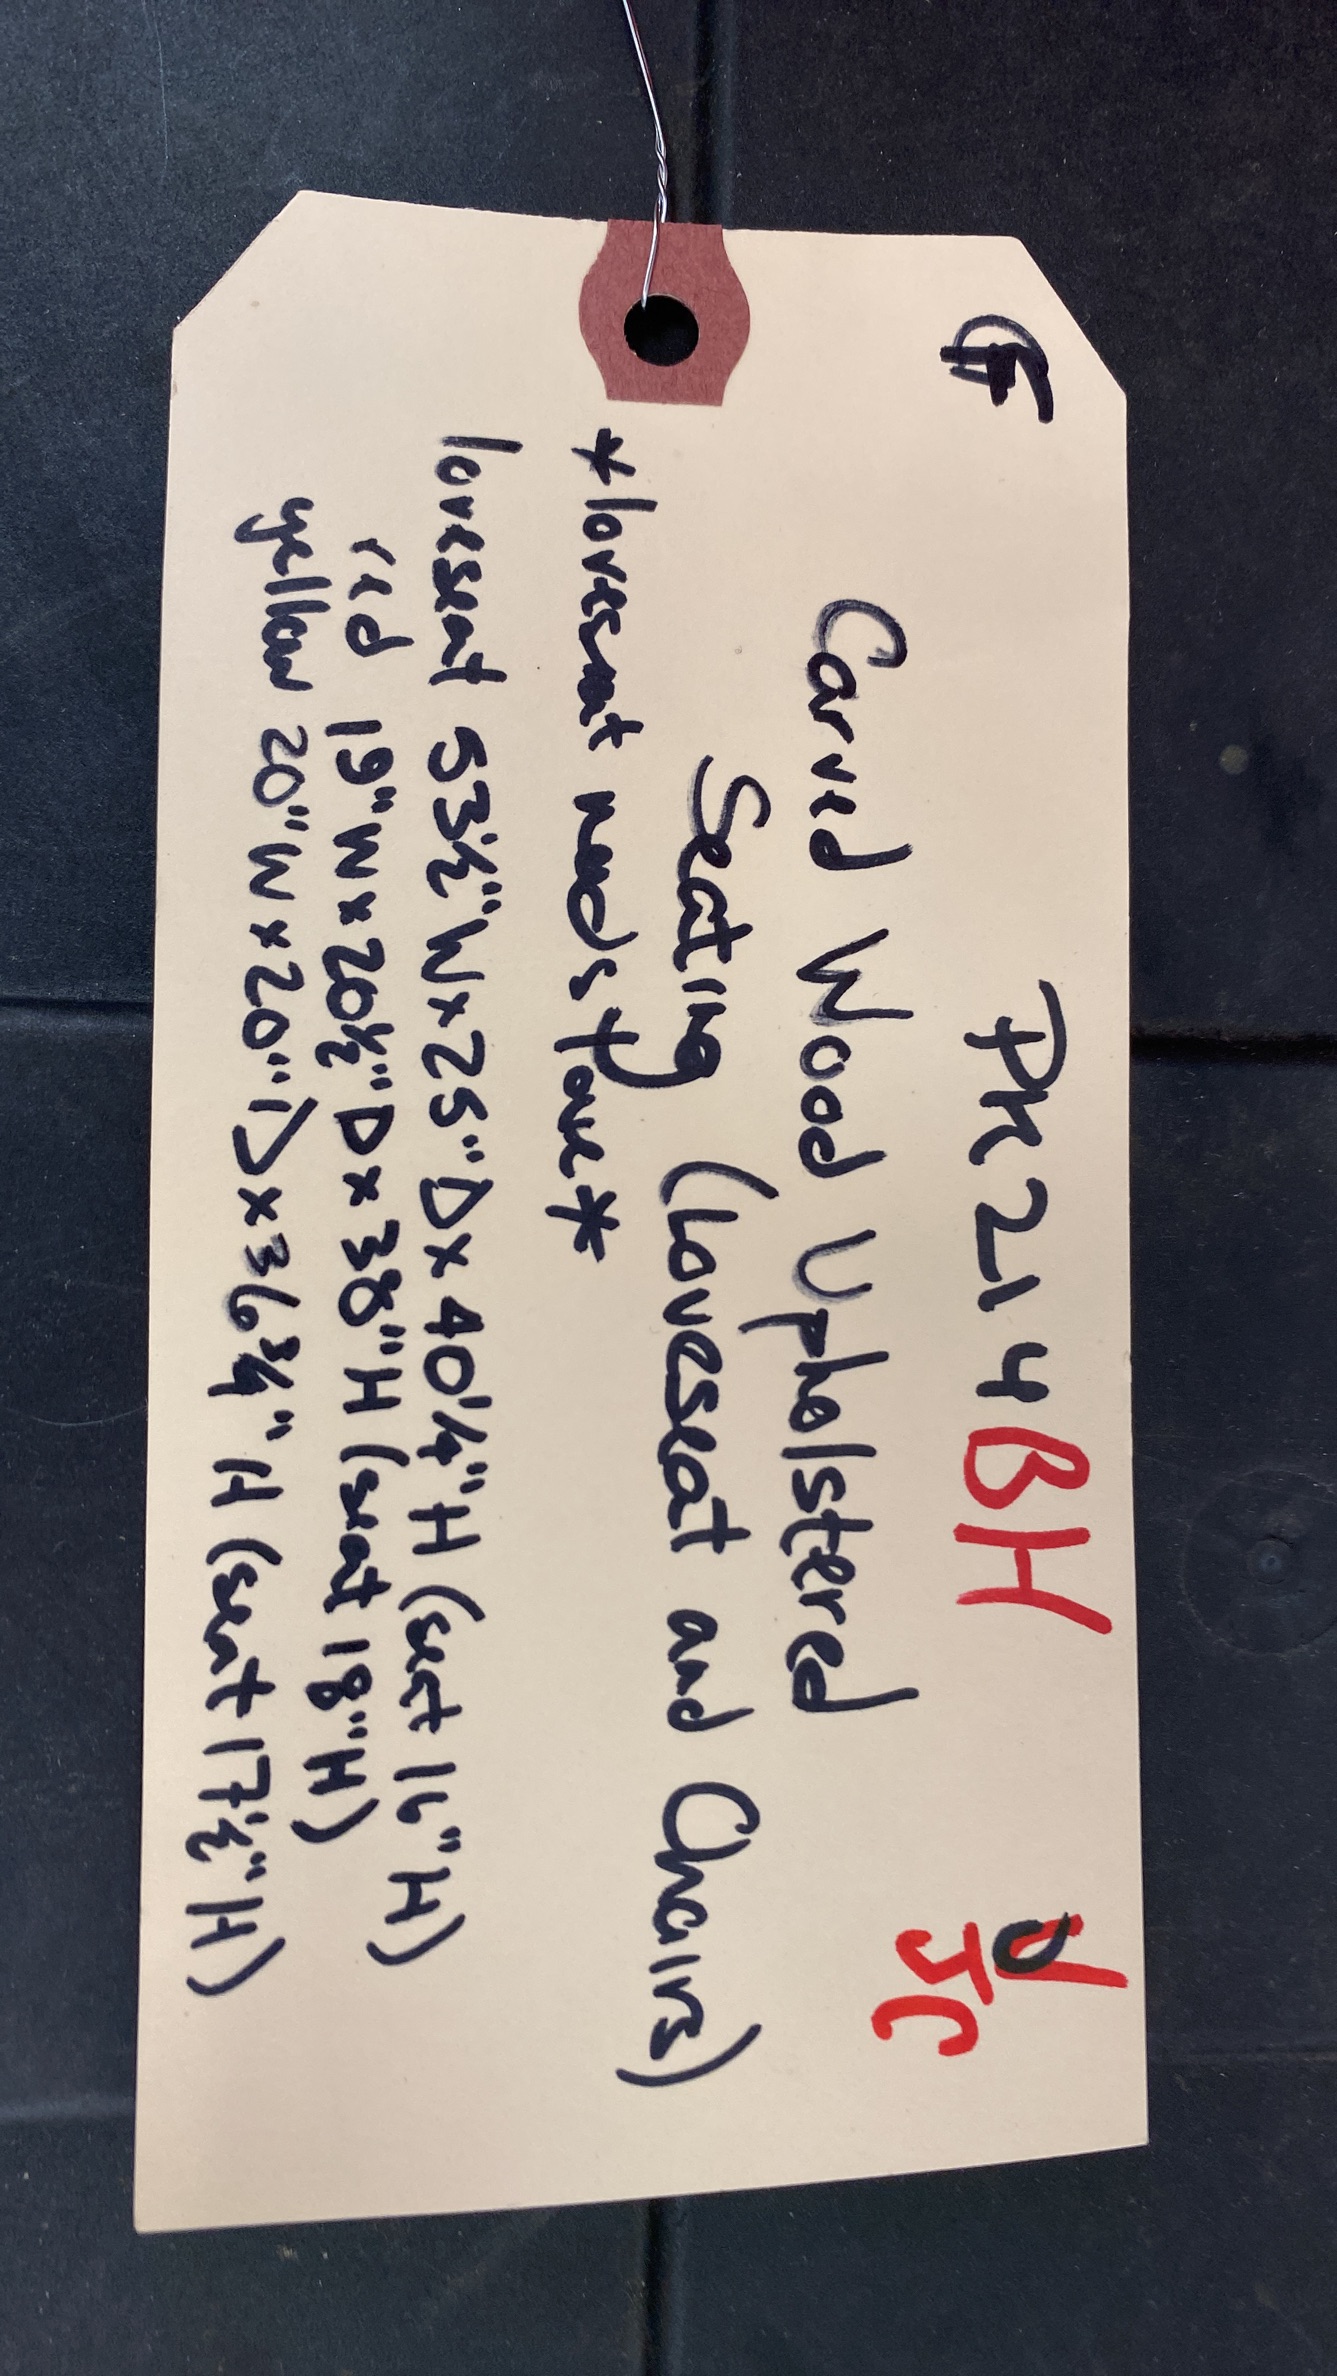 PK214 BH
JC
Carved Wood Upholstered
Seating (Loveseat and Chairs)
*loveseat needs *
loveseat 53½"W x 25"D x 40¼"H (seat 16"H)
red 19"W x 20½"D x 38"H (seat 18"H)
yellow 20"W x 20"D x 36¾"H (seat 17½"H)